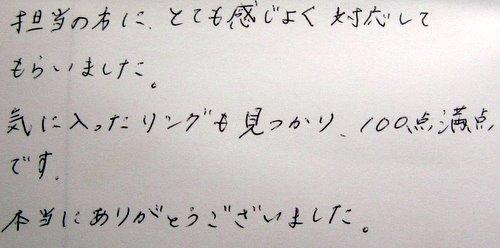 担当の方に、とても感じよく対応して
もらいました。
気に入ったリングも見つかり、100点満点
です。
本当にありがとうございました。